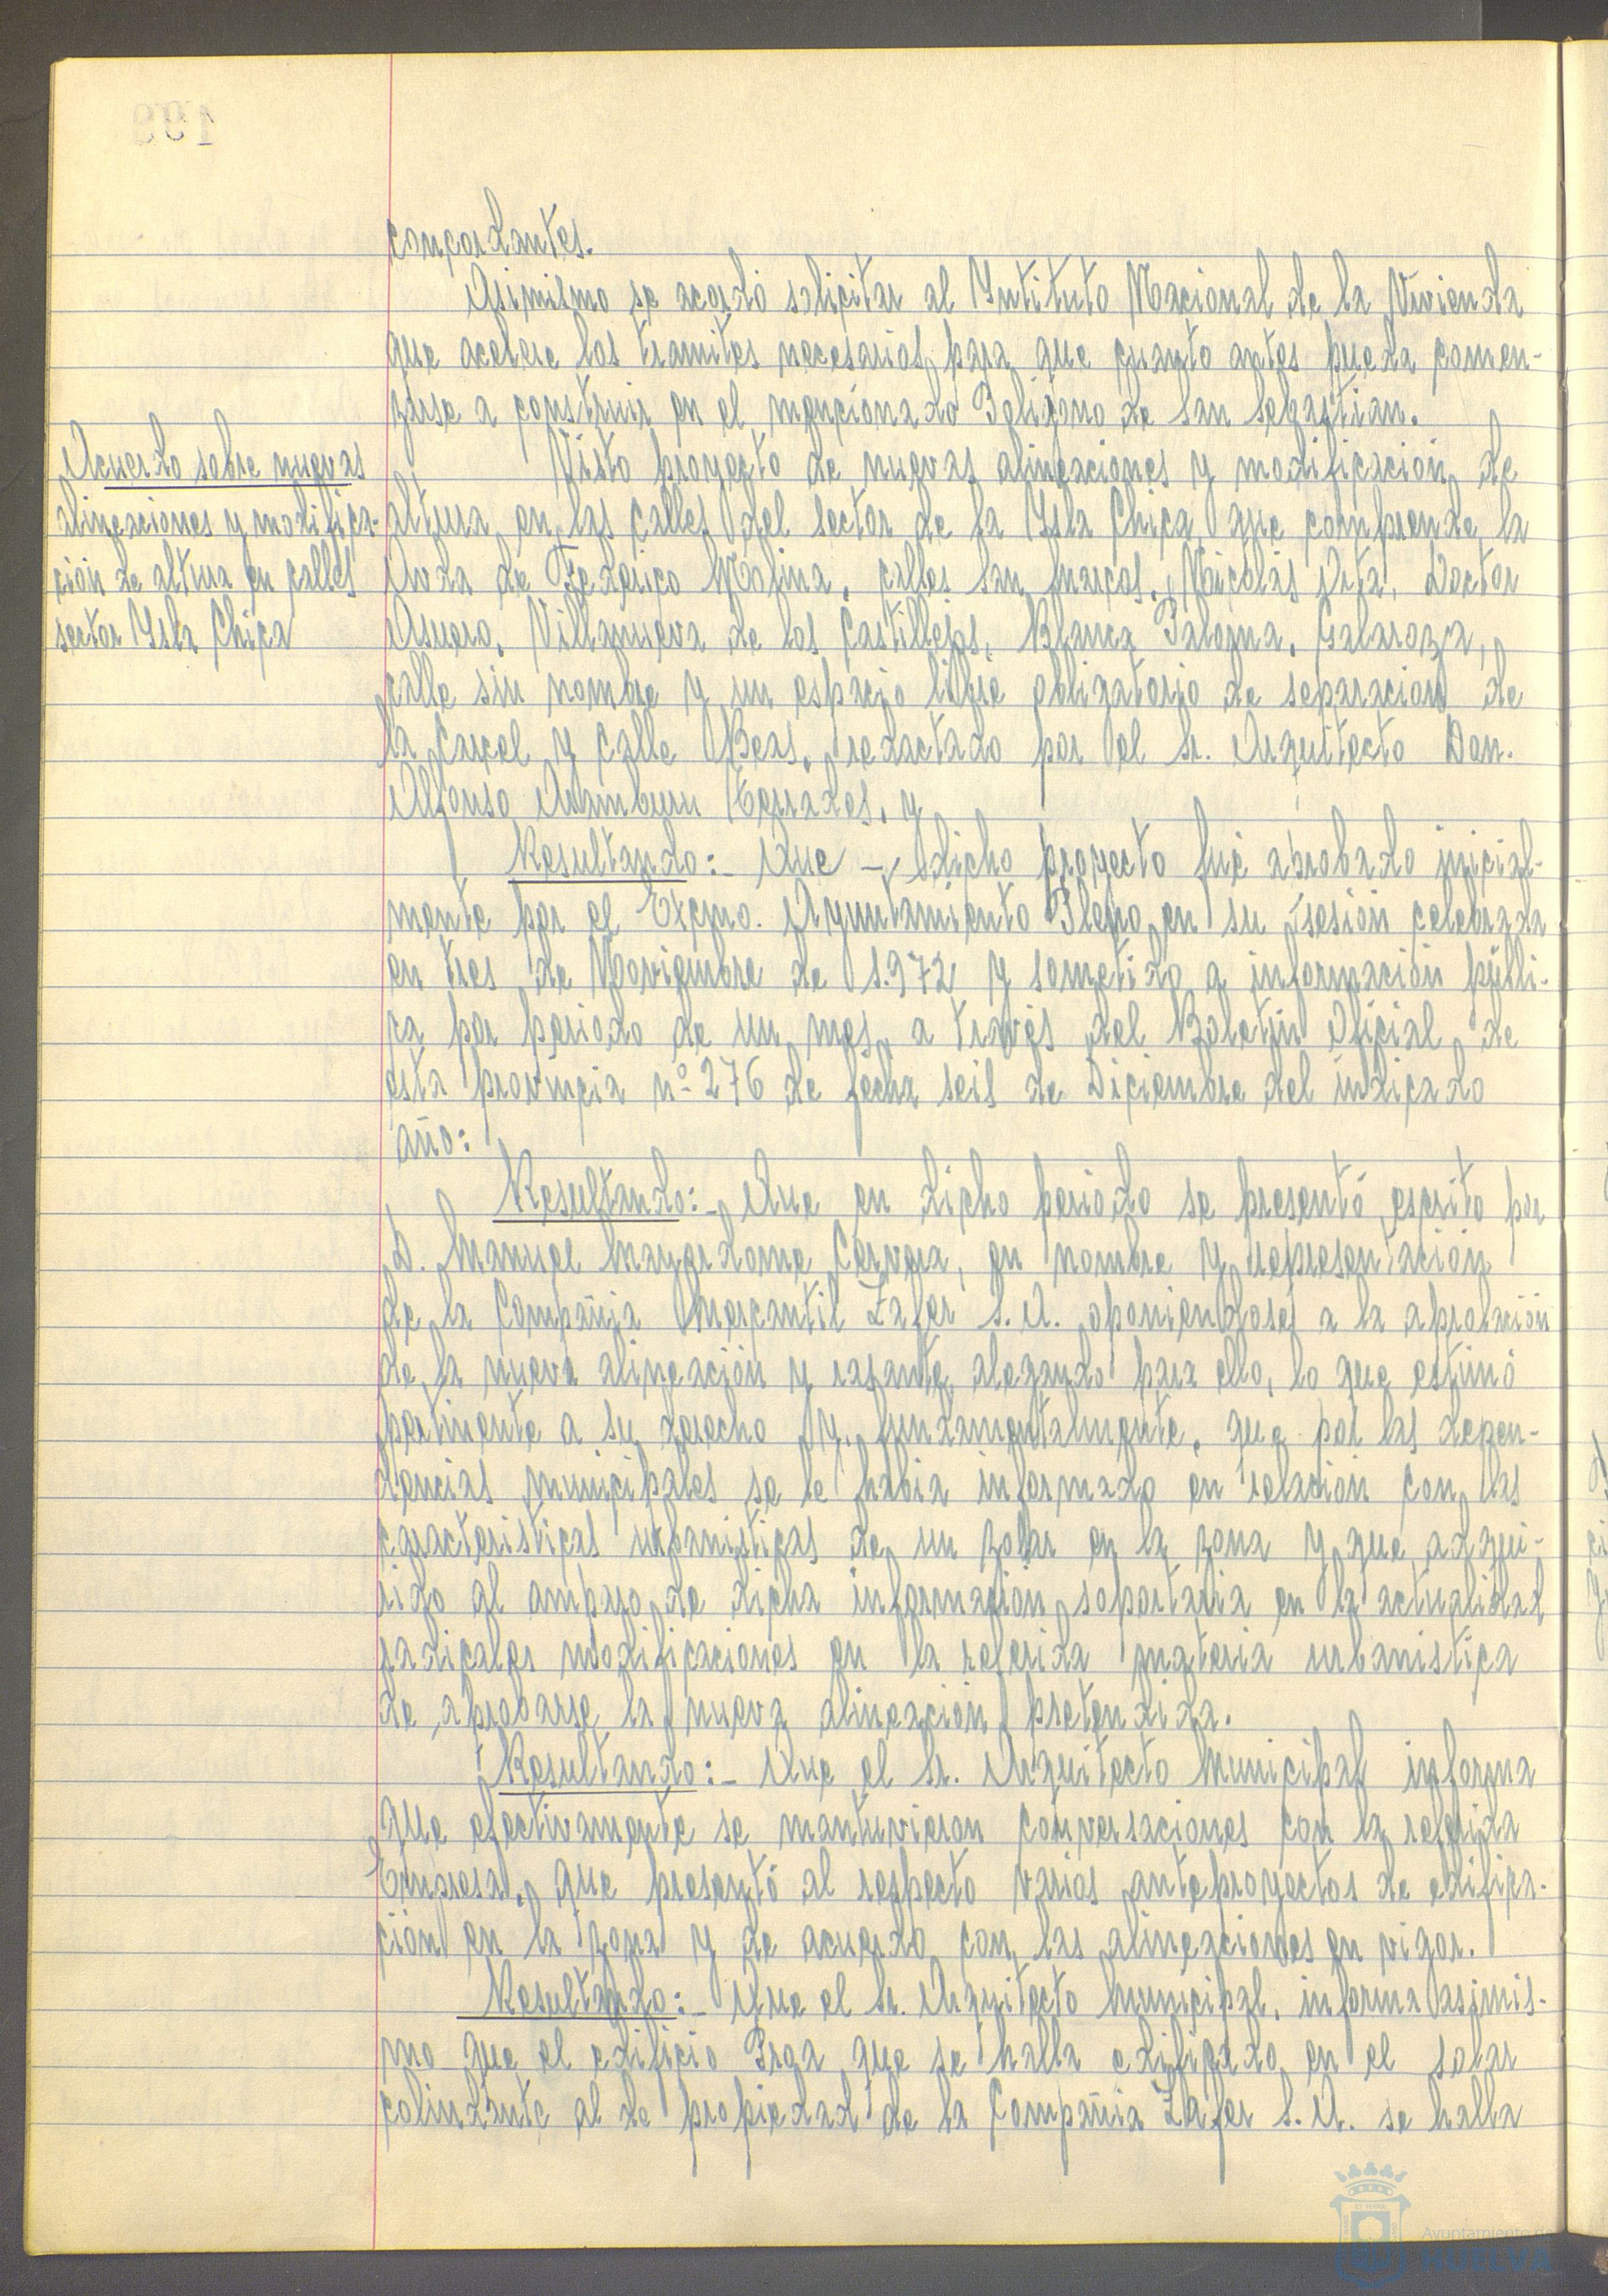 199
concordantes.
Asimismo se acordó solicitar al Intituto Nacional de la Vivienda
que acelere los tramites necesarios para que cuanto antes pueda comen-
zarse a construir en el mencionado Poligono de San Sebastian.
Acuerdo sobre nuevas
alineaciones y modifica-
ción de altura en calles
sector Ysla Chica
Visto proyecto de nuevas alineaciones y modificación de
altura en las calles del sector de la Ysla Chica que comprende la
Avda de Federico Molina, calles San Marcos, Nicolás Orta, Doctor
Asuero, Villanueva de los Castillejos, Blanca Paloma, Galaroza,
calle sin nombre y un espacio libre obligatorio de separación de
la Carcel y calle Beas, redactado por el Sr. Arquitecto Don.
Alfonso Aramburu Terrades, y
Resultando:- Que - dicho proyecto fué aprobado inicial-
mente por el Excmo. Ayuntamiento Pleno en su sesión celebrada
en tres de Noviembre de 1.972 y sometido a información públi-
ca por periodo de un mes, a través del Boletin Oficial de
esta provincia nº 276 de fecha seis de Diciembre del indicado
año:
Resultando:- Que en dicho periodo se presentó escrito por
D. Manuel Mayordomo Cervera, en nombre y representación
de la Compañia Mercantil Zafer S.A. oponiendose a la aprobación
de la nueva alineación y rasante alegando para ello, lo que estimó
pertinente a su derecho y, fundamentalmente, que por las depen-
dencias municipales se le habia informado en relación con las
caracteristicas urbanisticas de un solar en la zona y que adqui-
rido al amparo de dicha información soportaria en la actualidad
radicales modificaciones en la referida materia urbanistica
de aprobarse la nueva alineación pretendida.
Resultando:- Que el Sr. Arquitecto Municipal informa
que efectivamente se mantuvieron conversaciones con la referida
Empresa, que presentó al respecto varios anteproyectos de edifica-
ción en la zona y de acuerdo con las alineaciones en vigor.
Resultando:- Que el Sr. Arquitecto Municipal, informa asimis-
mo que el edificio Prga que se halla edificado en el solar
colindante al de propiedad de la Compañia Zafer S.A. se halla
Ayuntamiento de
HUELVA